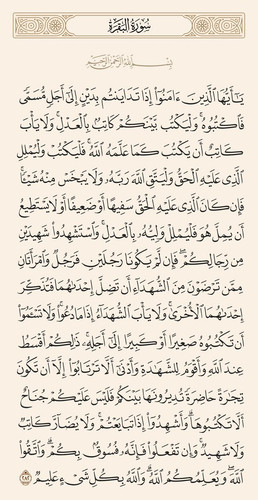 سُورَةُ البَقَرَةِ
بِسْمِ اللَّهِ الرَّحْمَنِ الرَّحِيمِ
يَٰٓأَيُّهَا ٱلَّذِينَ ءَامَنُوٓاْ إِذَا تَدَايَنتُم بِدَيْنٍ إِلَىٰٓ أَجَلٍ مُّسَمًّى
فَٱكْتُبُوهُۚ وَلْيَكْتُب بَّيْنَكُمْ كَاتِبُۢ بِٱلْعَدْلِۚ وَلَا يَأْبَ
كَاتِبٌ أَن يَكْتُبَ كَمَا عَلَّمَهُ ٱللَّهُۚ فَلْيَكْتُبْ وَلْيُمْلِلِ
ٱلَّذِى عَلَيْهِ ٱلْحَقُّ وَلْيَتَّقِ ٱللَّهَ رَبَّهُۥ وَلَا يَبْخَسْ مِنْهُ شَيْـًٔاۚ
فَإِن كَانَ ٱلَّذِى عَلَيْهِ ٱلْحَقُّ سَفِيهًا أَوْ ضَعِيفًا أَوْ لَا يَسْتَطِيعُ
أَن يُمِلَّ هُوَ فَلْيُمْلِلْ وَلِيُّهُۥ بِٱلْعَدْلِۚ وَٱسْتَشْهِدُواْ شَهِيدَيْنِ
مِن رِّجَالِكُمْۖ فَإِن لَّمْ يَكُونَا رَجُلَيْنِ فَرَجُلٌ وَٱمْرَأَتَانِ
مِمَّن تَرْضَوْنَ مِنَ ٱلشُّهَدَآءِ أَن تَضِلَّ إِحْدَىٰهُمَا فَتُذَكِّرَ
إِحْدَىٰهُمَا ٱلْأُخْرَىٰۚ وَلَا يَأْبَ ٱلشُّهَدَآءُ إِذَا مَا دُعُواْۚ وَلَا تَسْـَٔمُوٓاْ
أَن تَكْتُبُوهُ صَغِيرًا أَوْ كَبِيرًا إِلَىٰٓ أَجَلِهِۦۚ ذَٰلِكُمْ أَقْسَطُ
عِندَ ٱللَّهِ وَأَقْوَمُ لِلشَّهَٰدَةِ وَأَدْنَىٰٓ أَلَّا تَرْتَابُوٓاْ إِلَّآ أَن تَكُونَ
تِجَٰرَةً حَاضِرَةً تُدِيرُونَهَا بَيْنَكُمْ فَلَيْسَ عَلَيْكُمْ جُنَاحٌ
أَلَّا تَكْتُبُوهَاۗ وَأَشْهِدُوٓاْ إِذَا تَبَايَعْتُمْۚ وَلَا يُضَآرَّ كَاتِبٌ
وَلَا شَهِيدٌۚ وَإِن تَفْعَلُواْ فَإِنَّهُۥ فُسُوقُۢ بِكُمْۗ وَٱتَّقُواْ
ٱللَّهَۖ وَيُعَلِّمُكُمُ ٱللَّهُۗ وَٱللَّهُ بِكُلِّ شَىْءٍ عَلِيمٌ ٢٨٢